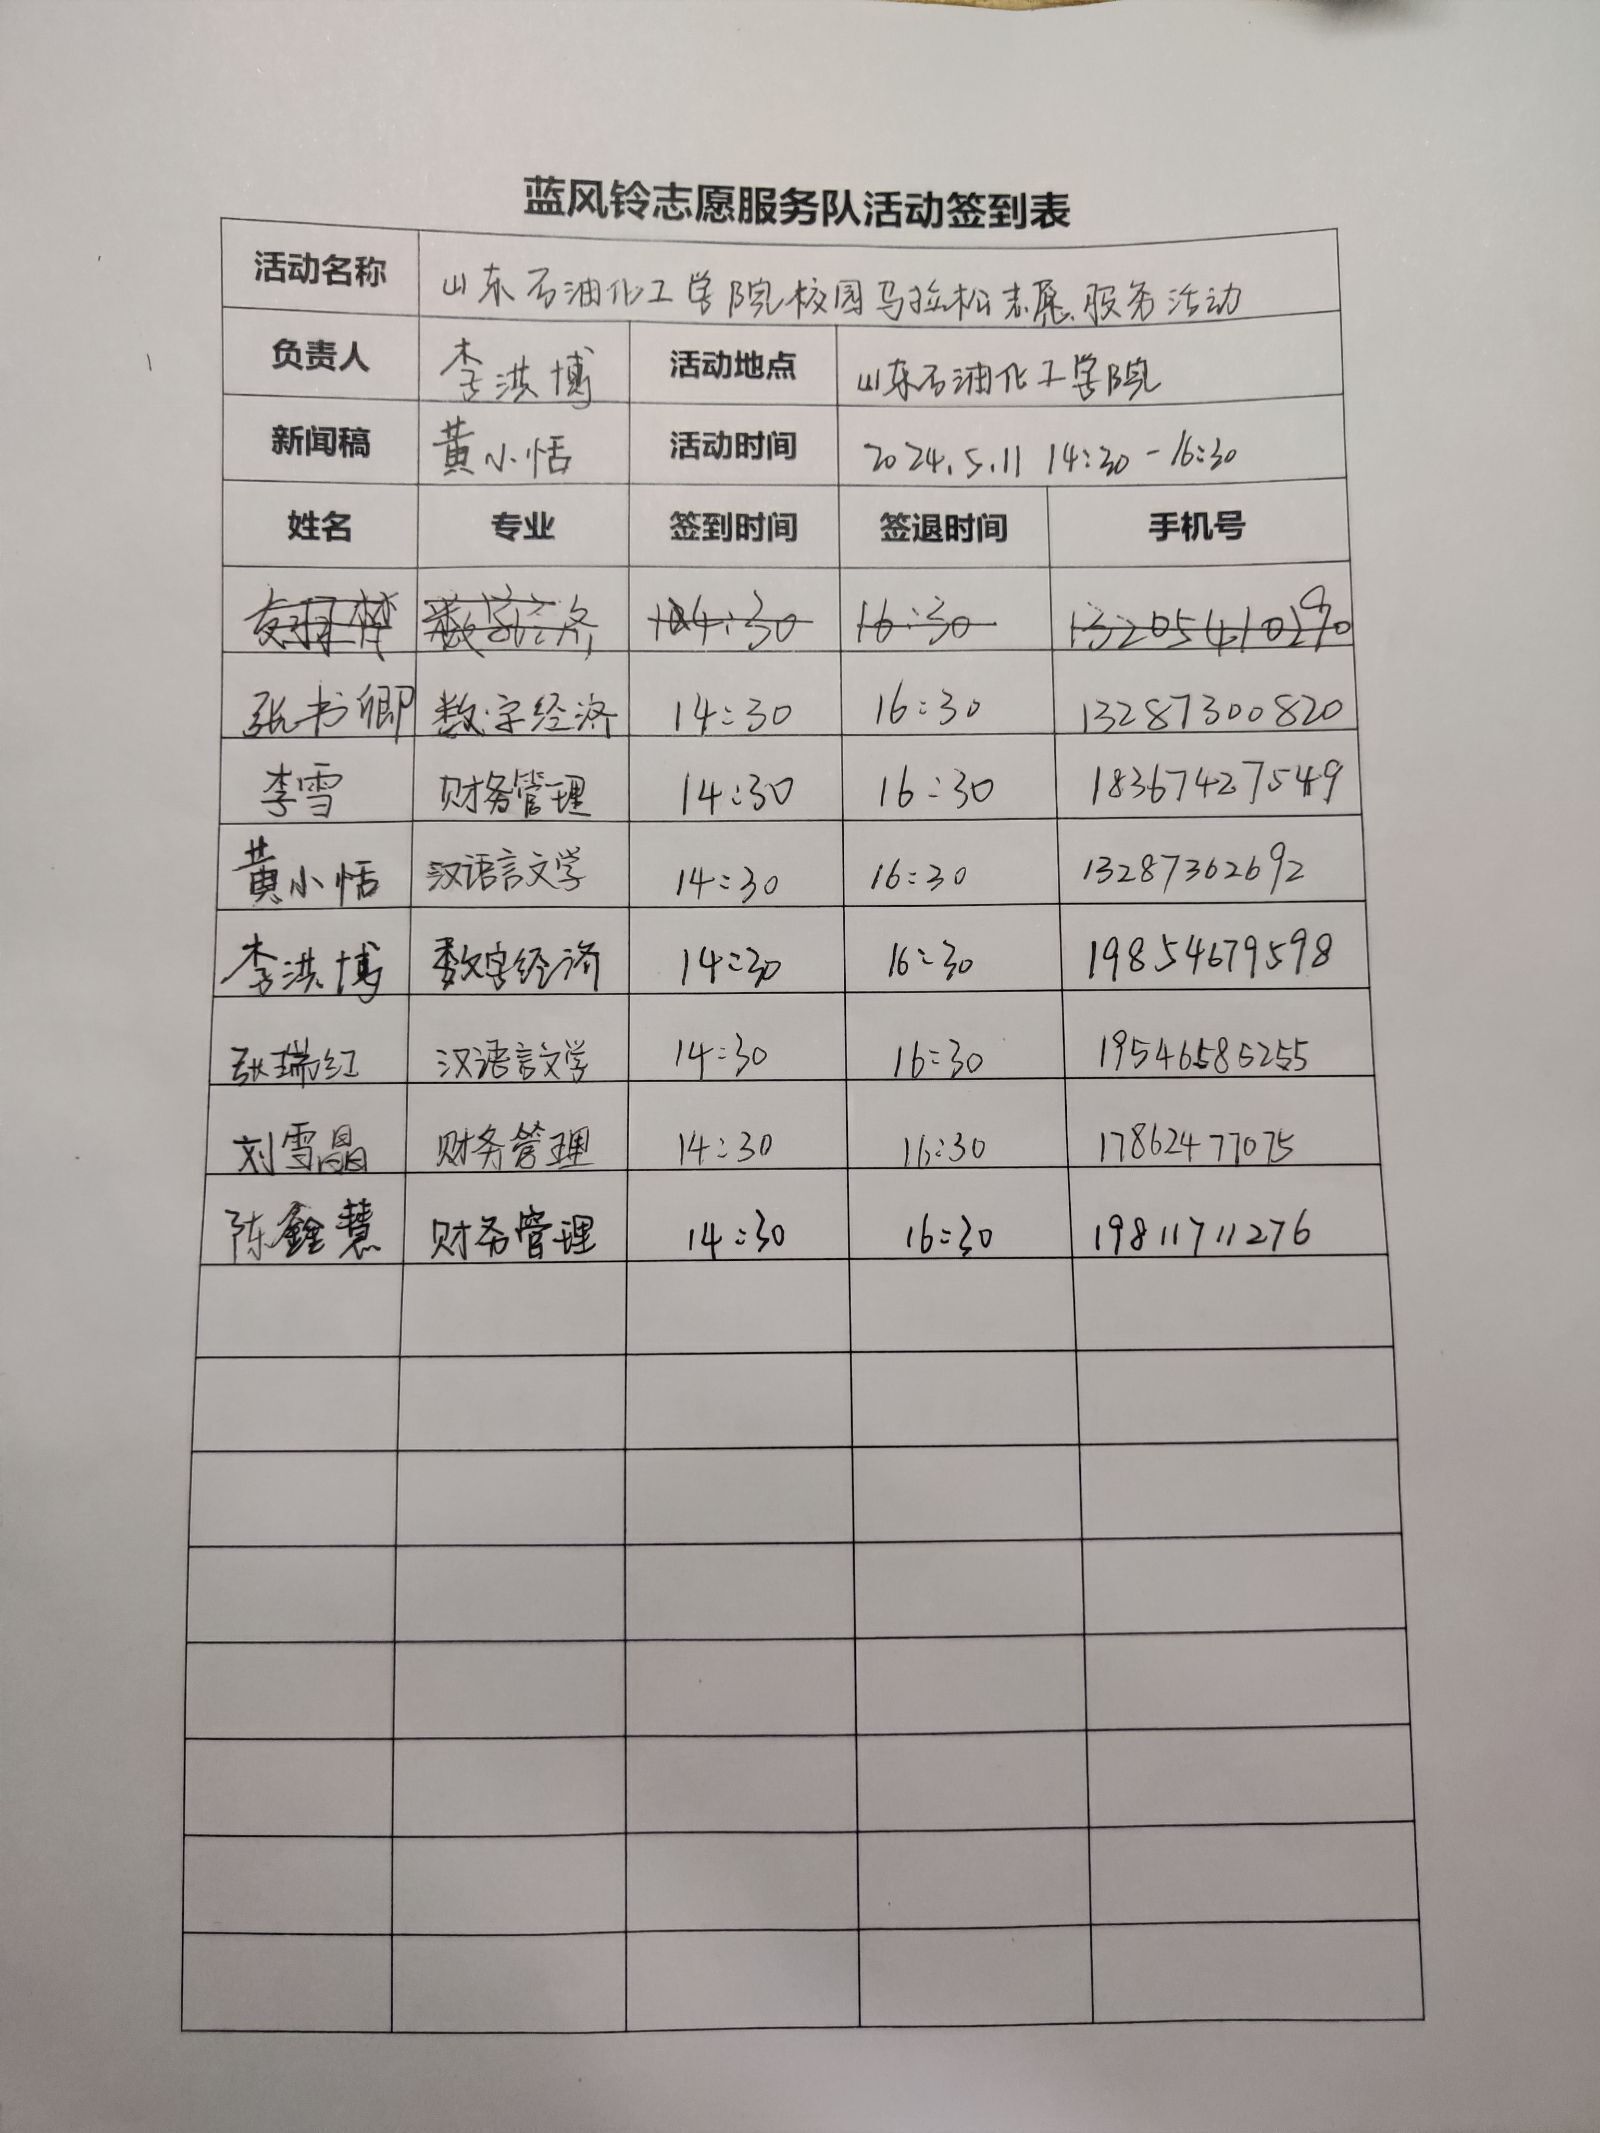 蓝风铃志愿服务队活动签到表
活动名称 山东石油化工学院校园马拉松志愿服务活动
负责人 李洪博 活动地点 山东石油化工学院
新闻稿 黄小恬 活动时间 2024.5.11 14:30-16:30
姓名 专业 签到时间 签退时间 手机号
数字经济 14:30 16:30
张书卿 数字经济 14:30 16:30 13287300820
李雪 财务管理 14:30 16:30 18367427549
黄小恬 汉语言文学 14:30 16:30 13287302692
李洪博 数字经济 14:30 16:30 19854679598
张瑞红 汉语言文学 14:30 16:30 19546585255
刘雪晶 财务管理 14:30 16:30 17862477075
陈鑫慧 财务管理 14:30 16:30 19811711276